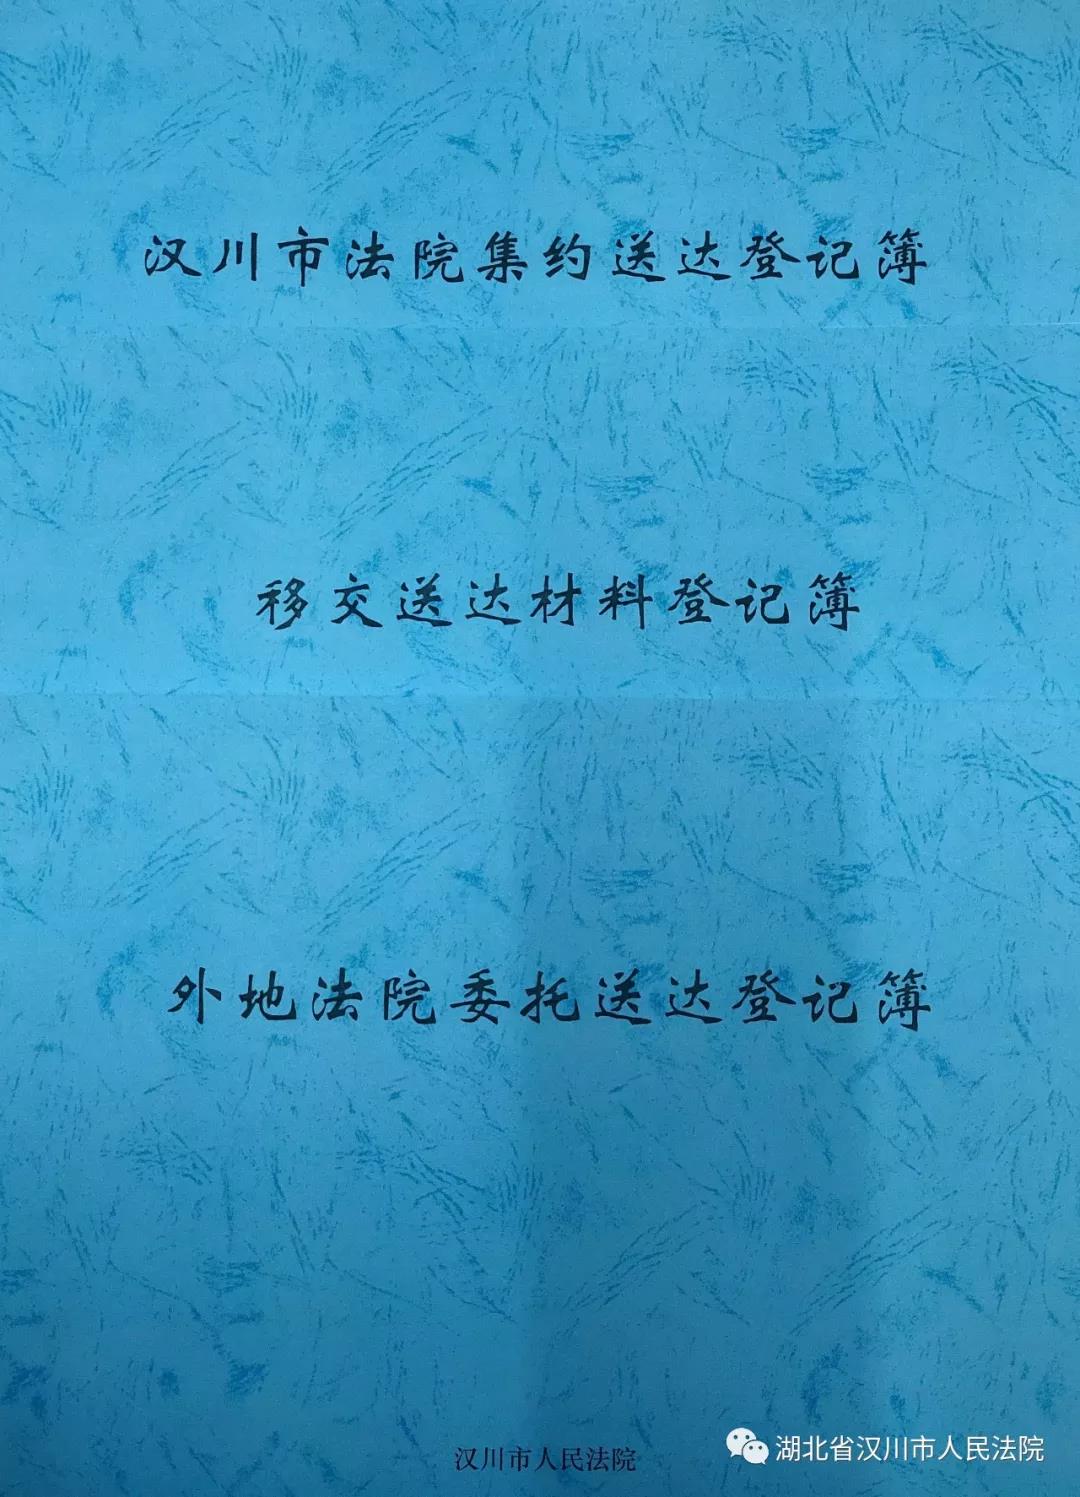 汉川市法院集约送达登记簿
移交送达材料登记簿
外地法院委托送达登记簿
汉川市人民法院
湖北省汉川市人民法院